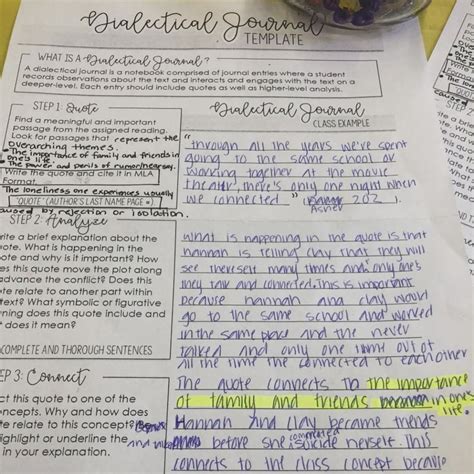 Dialectical Journal
TEMPLATE
WHAT IS A Dialectical Journal?
A dialectical journal is a notebook comprised of journal entries where a student
records observations about the text and interacts and engages with the text on a
deeper-level. Each entry should include quotes as well as higher-level analysis.
STEP 1: Quote
Find a meaningful and important
passage from the assigned reading.
Look for passages that represent the
overarching themes.
The importance of family and friends in
one's life.
The power and perils of rumor/hearsay.
Write the quote and cite it in MLA
Format.
The loneliness one experiences usually
"QUOTE" (AUTHOR'S LAST NAME PAGE #)
caused by rejection or isolation.
STEP 2: Analyze
rite a brief explanation about the
ote. What is happening in the
ote and why is it important? How
es this quote move the plot along
advance the conflict? Does this
te relate to another part within
text? What symbolic or figurative
ning does this quote include and
t does it mean?
COMPLETE AND THOROUGH SENTENCES
EP 3: Connect
ct this quote to one of the
ncepts. Why and how does
te relate to this concept?
ighlight or underline the
in your explanation.
Dialectical Journal
CLASS EXAMPLE
"through all the years we've spent
going to the same school or
working together at the movie
theater, there's only one night when
we connected." Asher 202
what is happening in the quote is that
hannah is telling clay that they will
see theirself many times and only one's
they talk and connected. This is important
because hannah and clay would
go to the same school and worked
in the same place and the never
talked and only one time out of
all the time the connected to each other
The quote connects to the importance
of family and friends in one's
life.
Hannah and clay became friends
before she commited suicide herself. This
connects to the class concept because